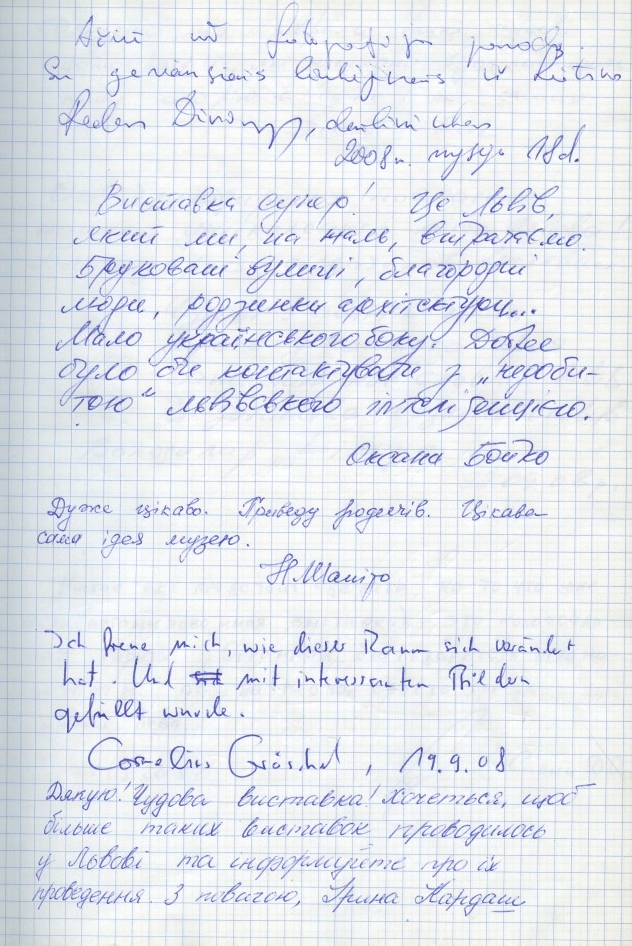 Ačiū už fotografijų parodą.
Su geriausiais linkėjimais iš Lietuvos
2008 m. rugsėjo 18 d.
Виставка супер! Це Львів,
який ми, на жаль, втрачаємо.
Бруковані вулиці, благородні
люди, родзинки архітектури...
Мало українського боку. Добре
було би контактувати з „недоби-
тою" львівською інтелігенцією.
Оксана Бойко
Дуже цікаво. Приведу родичів. Цікава
сама ідея музею.
Н.Шапіро
Ich freue mich, wie dieser Raum sich verändert
hat. Und mit interessanten Bildern
gefüllt wurde.
Cornelius, 19.9.08
Дякую! Чудова виставка! Хочеться, щоб
більше таких виставок проводилось
у Львові та інформуйте про їх
проведення. З повагою, Ірина Кардаш